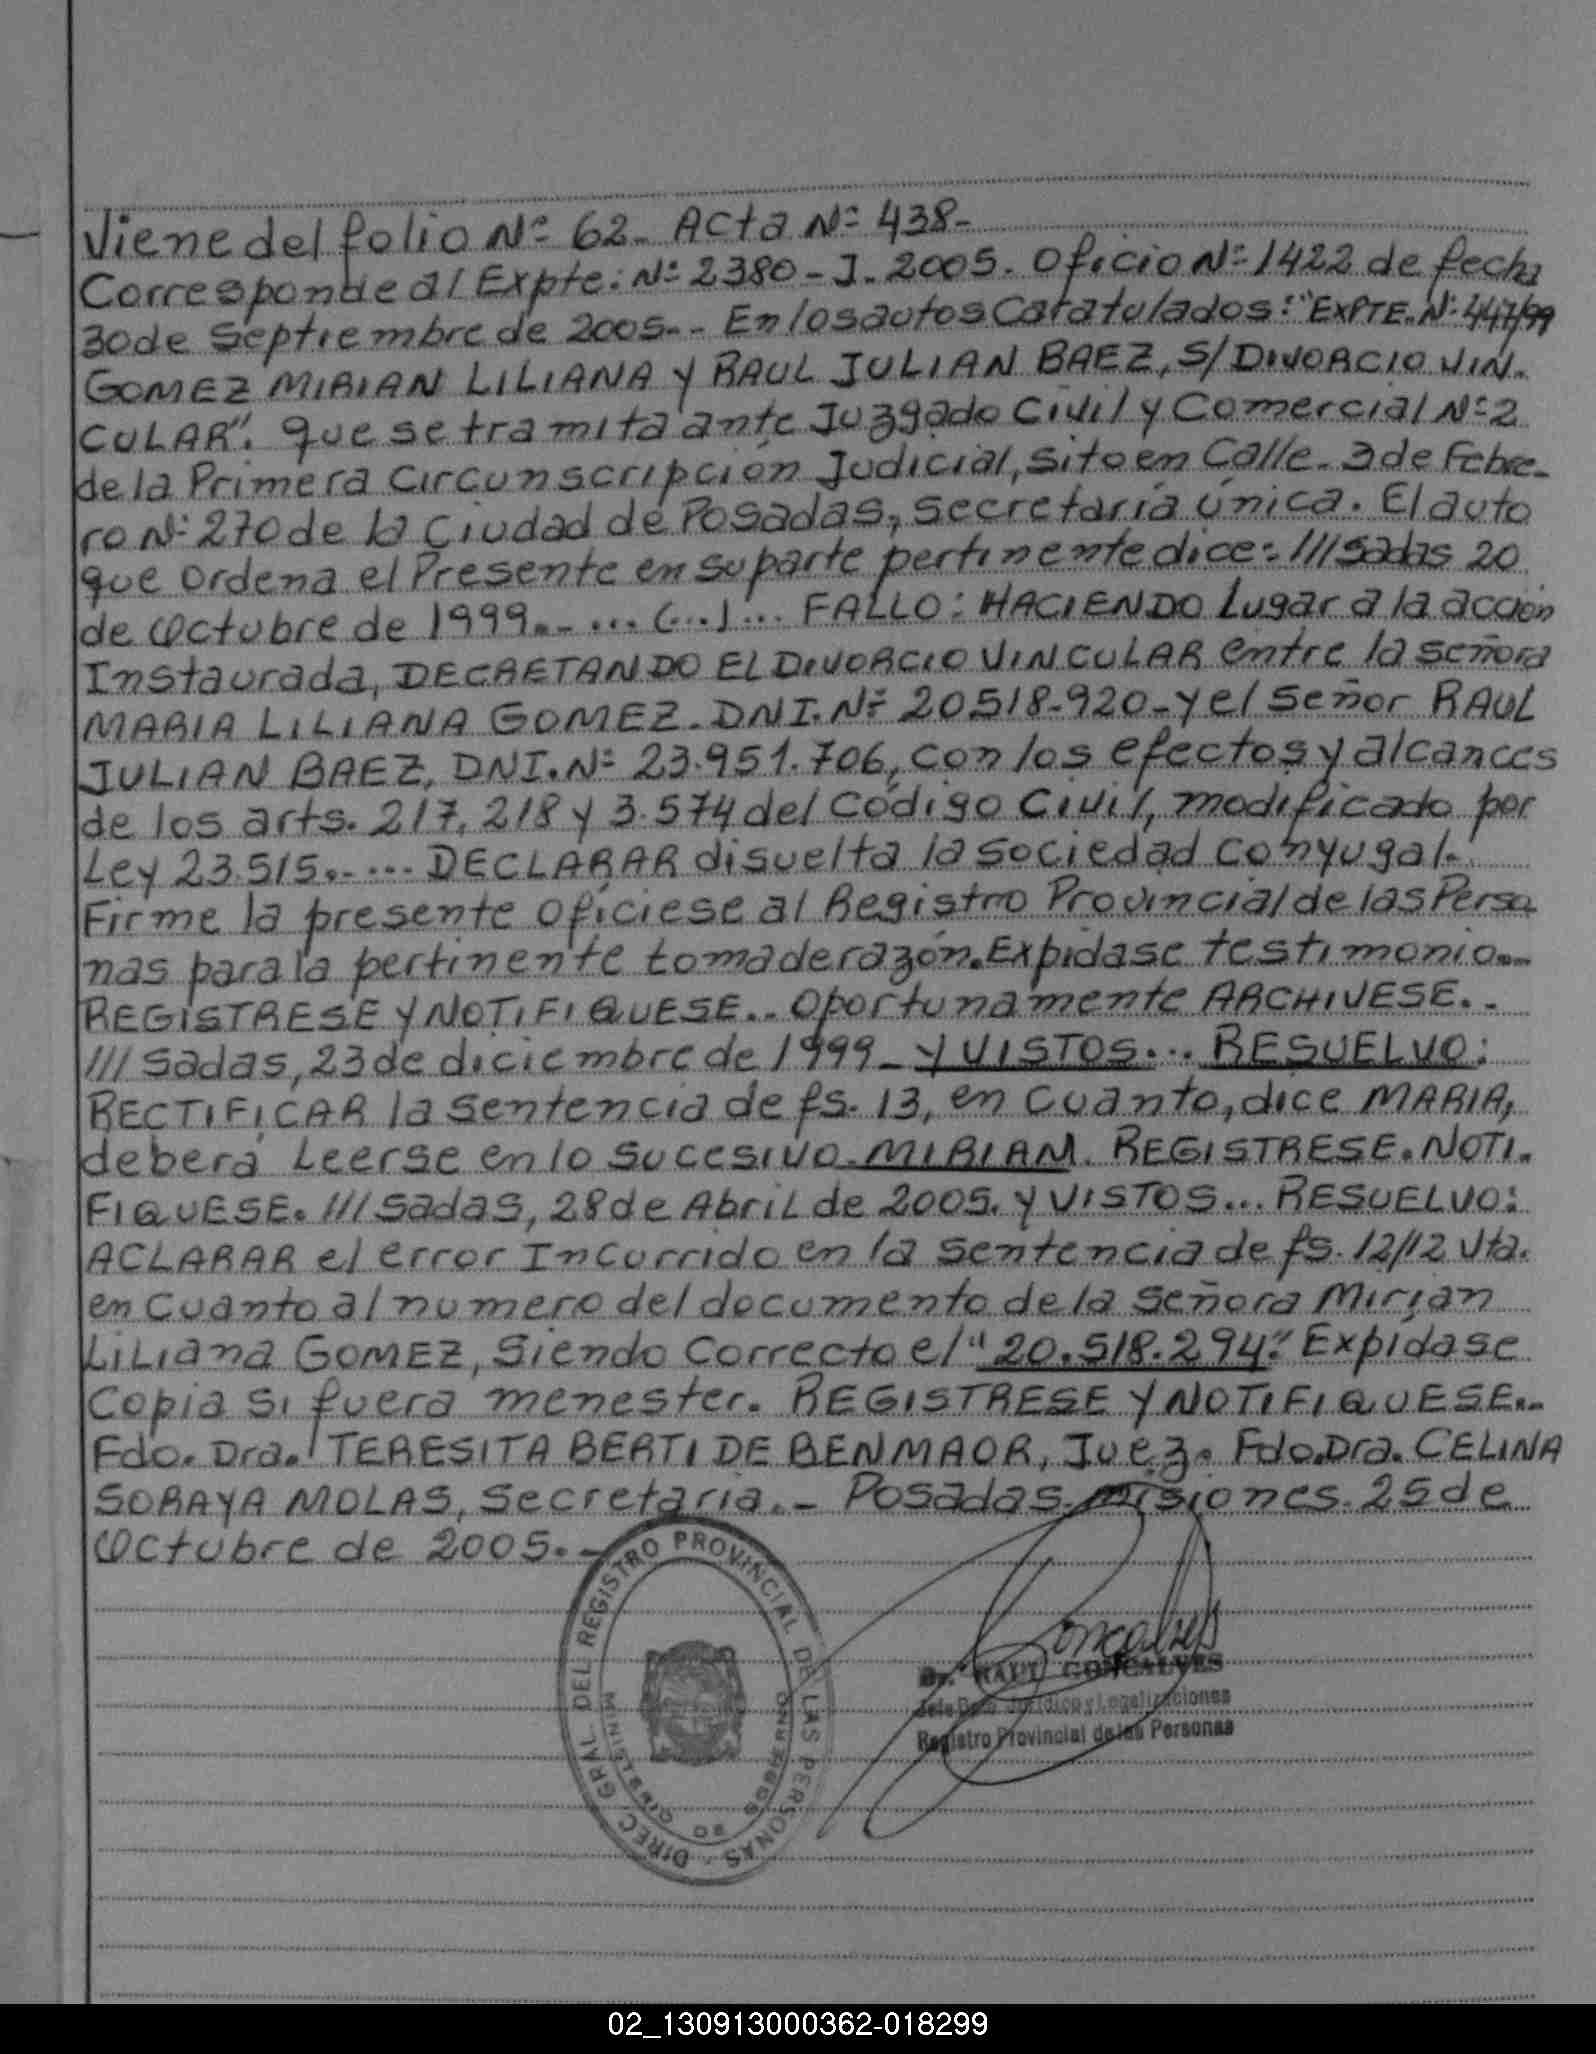 Viene del folio Nº 62. Acta Nº 438-
Corresponde al Expte: Nº 2380-J. 2005. Oficio Nº 1422 de fecha
30 de Septiembre de 2005.- En los autos Caratulados: "EXPTE. Nº 447/99
GOMEZ MIRIAN LILIANA Y RAUL JULIAN BAEZ, S/ DIVORCIO VIN.
CULAR". que se tramita ante Juzgado Civil y Comercial Nº 2
de la Primera Circunscripción Judicial, sito en Calle. 3 de Febre-
ro Nº 270 de la Ciudad de Posadas, secretaría única. El auto
que ordena el Presente en su parte pertinente dice: ///sadas 20
de Octubre de 1999.- ... (...) ... FALLO: HACIENDO Lugar a la acción
Instaurada, DECRETANDO EL DIVORCIO VINCULAR entre la señora
MARIA LILIANA GOMEZ. DNI. Nº 20518.920- y el Señor RAUL
JULIAN BAEZ, DNI. Nº 23.951.706, con los efectos y alcances
de los arts. 217, 218 y 3.574 del Código Civil, modificado por
Ley 23.515.- ... DECLARAR disuelta la sociedad conyugal.
Firme la presente ofíciese al Registro Provincial de las Perso
nas para la pertinente toma de razón. Expídase testimonio.-
REGISTRESE Y NOTIFIQUESE.. Oportunamente ARCHIVESE.-
/// sadas, 23 de diciembre de 1999- Y VISTOS... RESUELVO:
RECTIFICAR la sentencia de fs. 13, en cuanto, dice MARIA,
deberá Leerse en lo sucesivo. MIRIAM. REGISTRESE. NOTI.
FIQUESE. /// sadas, 28 de Abril de 2005. Y VISTOS... RESUELVO:
ACLARAR el error Incurrido en la sentencia de fs. 12/12 vta.
en cuanto al numero del documento de la señora Mirian
LiLiana GOMEZ, siendo correcto el "20.518.294". Expídase
Copia si fuera menester. REGISTRESE Y NOTIFIQUESE..
Fdo. Dra. TERESITA BERTI DE BENMAOR, Juez. Fdo. Dra. CELINA
SORAYA MOLAS, Secretaria.- Posadas. misiones. 25 de
Octubre de 2005.-
DIREC. GRAL. DEL REGISTRO PROVINCIAL DE LAS PERSONAS
MINISTERIO DE GOBIERNO
Dr. RAUL GONCALVES
Jefe Dpto Jurídico y Legalizaciones
Registro Provincial de las Personas
02_130913000362-018299